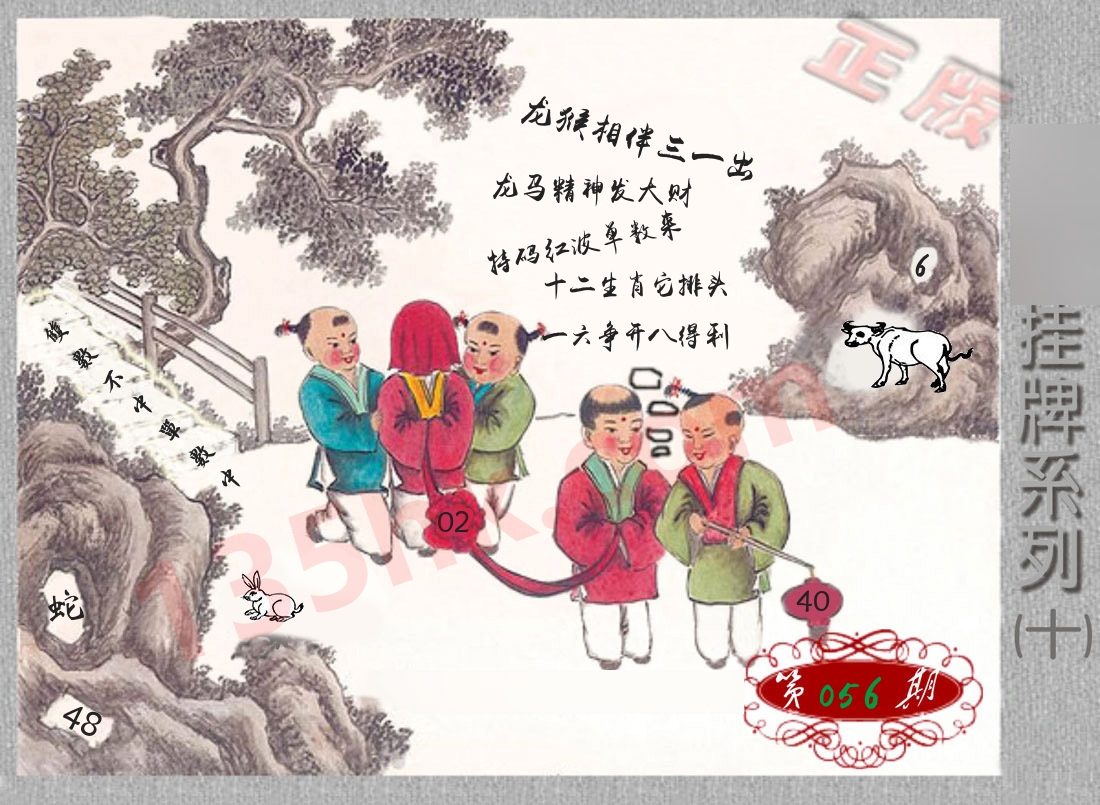 正版
龙猴相伴三一出
龙马精神发大财
特码红波单数来
十二生肖它排头
一六争开八得利
6
雙數不中單數中
02
40
蛇
48
35hk.com
第056期
挂牌系列(十)